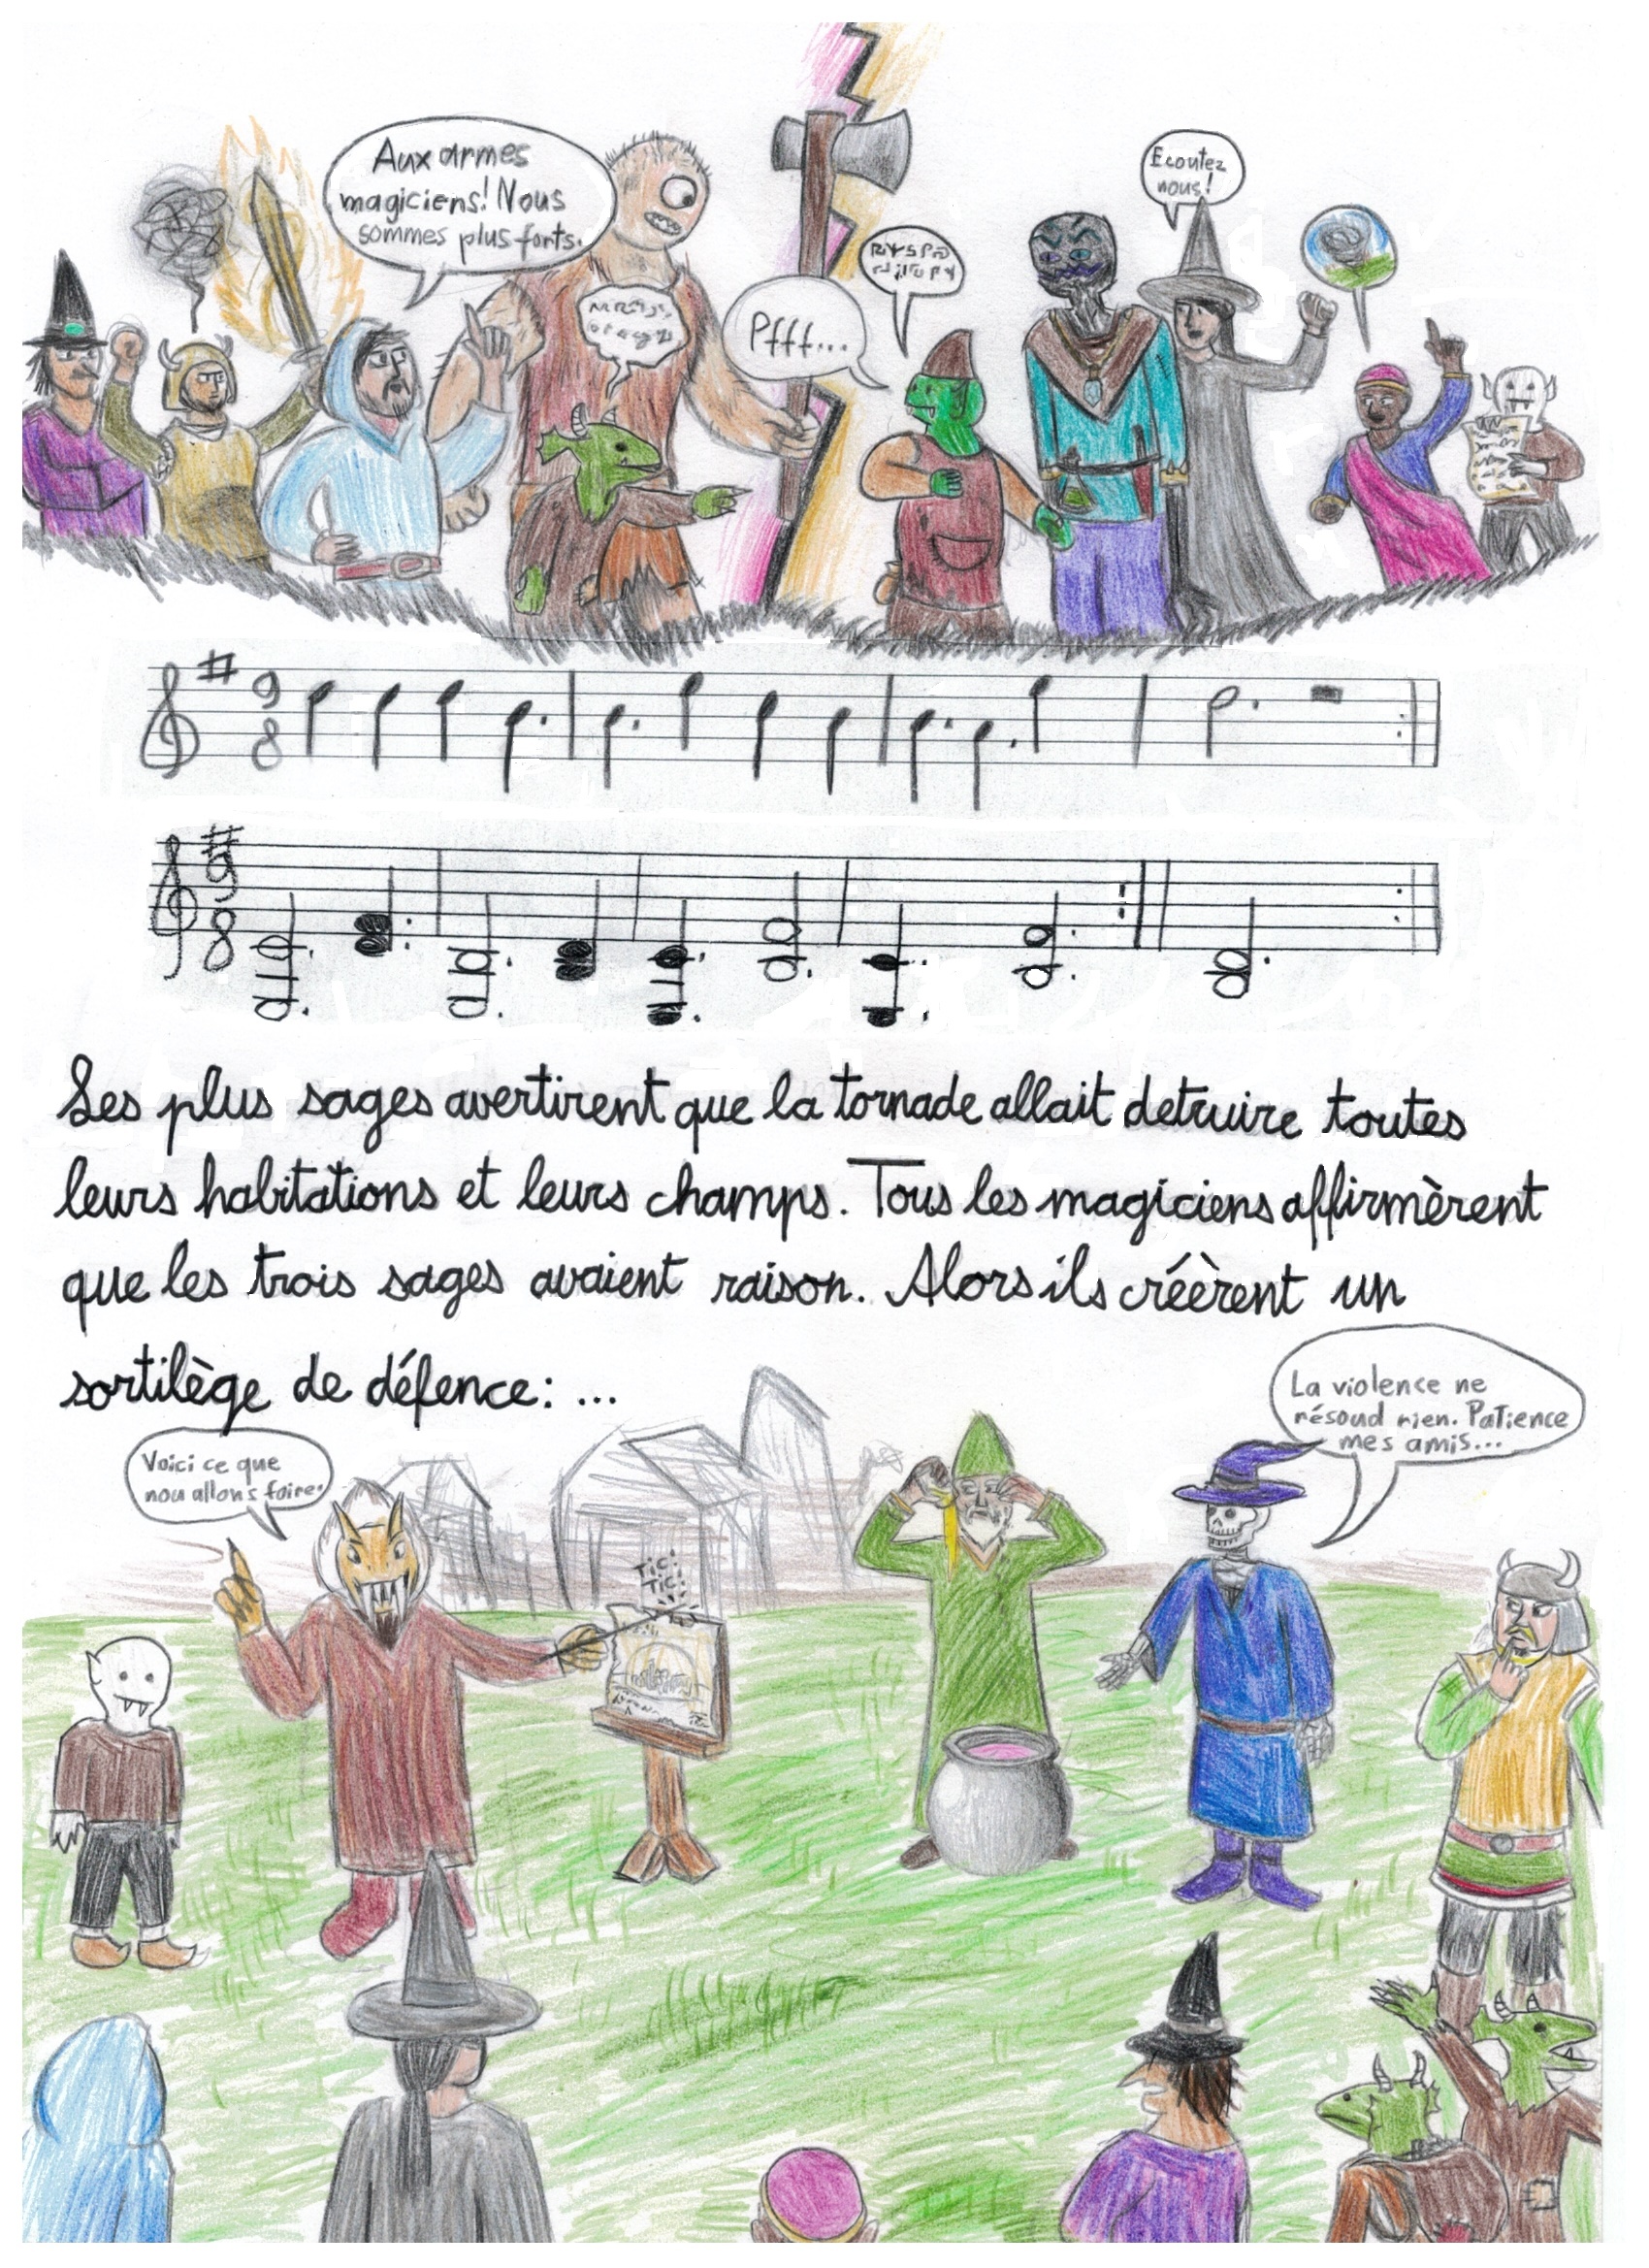 Aux armes
magiciens! Nous
sommes plus forts.
Pfff...
Ecoutez
nous!
9
8
9
8
Les plus sages avertirent que la tornade allait detruire toutes
leurs habitations et leurs champs. Tous les magiciens affirmèrent
que les trois sages avaient raison. Alors ils créèrent un
sortilège de défence: ...
Voici ce que
nou allons faire.
La violence ne
résoud rien. Patience
mes amis...
Tic!
Tic!